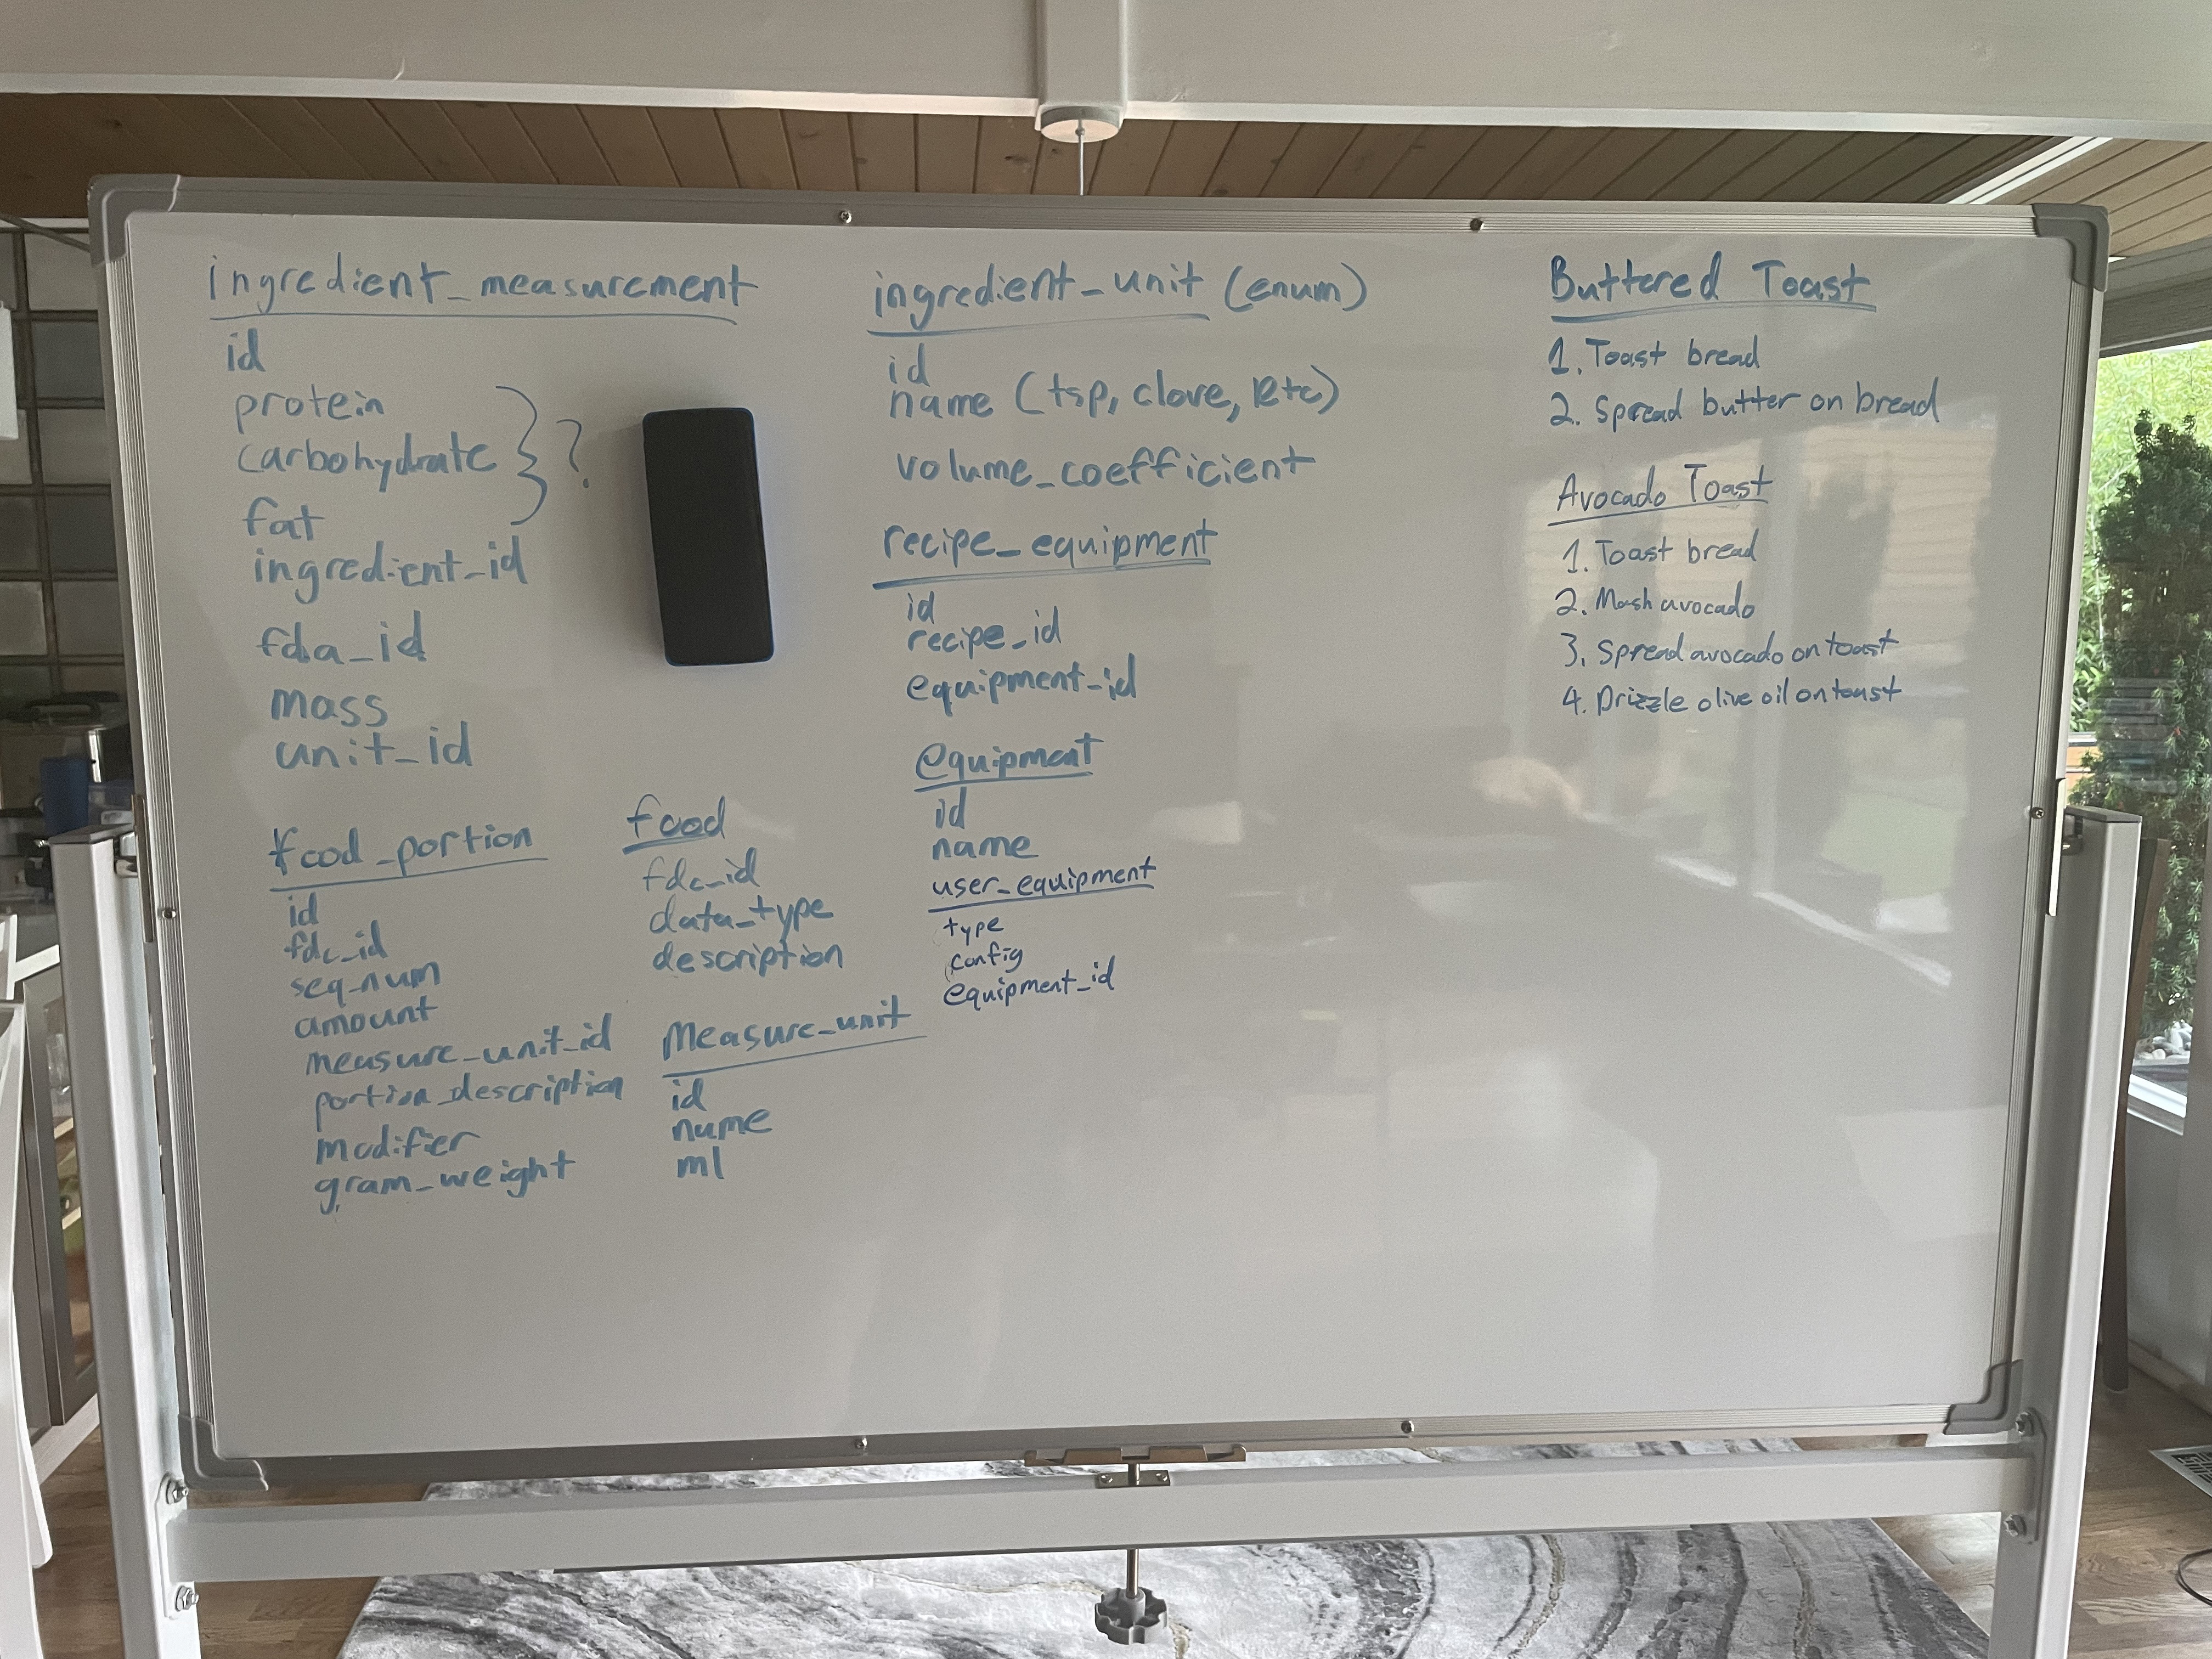 ingredient_measurement
id
protein
carbohydrate } ?
fat
ingredient_id
fda_id
mass
unit_id
food_portion
id
fdc_id
seq_num
amount
measure_unit_id
portion_description
modifier
gram_weight
food
fdc_id
data_type
description
measure_unit
id
name
ml
ingredient_unit (enum)
id
name (tsp, clove, etc)
volume_coefficient
recipe_equipment
id
recipe_id
equipment_id
equipment
id
name
user_equipment
type
config
equipment_id
Buttered Toast
1. Toast bread
2. Spread butter on bread
Avocado Toast
1. Toast bread
2. Mash avocado
3. Spread avocado on toast
4. Drizzle olive oil on toast